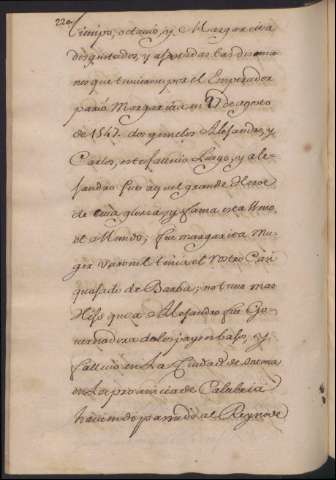 220
tiempo, octavio, y Margarita
disgustados, y apartadas las disencio
nes que tuvieron por el Emperador
pario Margarita en 27 de agosto
de 1547. dos gimelos Alesandro, y
Carlos, este fallecio luego, y ale-
sandro fue aquel grande Heroe
de cuia gloria, y fama esta lleno
el Mundo; fue margarita mu-
ger varonil tenia el rostro casi
quajado de Barba; no tuvo mas
Hijo que a Alesandro fue Go-
vernadora de los payses bajos, y
fallecio en la Ciudad de
en la provincia de Calabria
haviendo passado al Reyno de